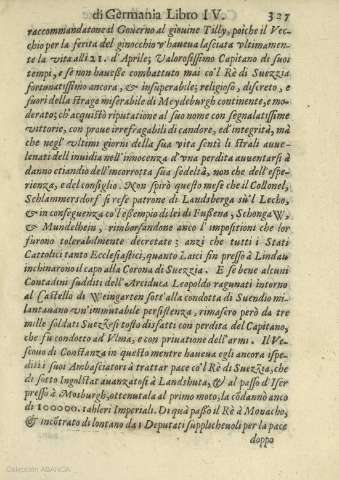 di Germania Libro IV. 327
raccommandatone al Governo al giouine Tilly, poiche il Vec-
chio per la ferita del ginocchio v'haueua lasciata vltimamen-
te la vita alli 21. d'Aprile; Valorosissimo Capitano di suoi
tempi, e se non hauesse combattuto mai co'l Rè di Suezzia
fortunatissimo ancora, & insuperabile; religioso, discreto, e
fuori della strage miserabile di Meydeburgh continente, e mo-
derato; ch'acquistò riputatione al suo nome con segnalatissime
vittorie, con proue irrefragabili di candore, ed'integrità, mà
che negl'vltimi giorni della sua vita sentì li strali auue-
lenati dell'inuidia nell'innocenza d'vna perdita auuentarsi à
danno etiandio dell'incorrotta sua fedeltà, non che dell'espe-
rienza, e del consiglio. Non spirò questo mese che il Collonel,
Schlammersdorf si rese patrone di Landsberga sù'l Lecho,
& in conseguenza co'l essempio di lei di Fussena, SchongaW,
& Mundelhein, rimborsandone anco l'impositioni che lor
furono tolerabilmente decretate; anzi che tutti i Stati
Cattolici tanto Ecclesiastici, quanto Laici fin presso à Lindau
inchinarono il capo alla Corona di Suezzia. E se bene alcuni
Contadini sudditi dell'Arciduca Leopoldo ragunati intorno
al Castello di Weingarten sott'alla condotta di Suendio mi-
lantauano vn'immutabile persistenza, rimasero però da tre
mille soldati Suezzesi tosto disfatti con perdita del Capitano,
che fù condotto ad Vlma, e con priuatione dell'armi. Il Ve-
scouo di Constanza in questo mentre haueua egli ancora spe-
diti i suoi Ambasciatori à trattar pace co'l Rè di Suezzia, che
di sotto Ingolstat auanzatosi à Landshuta, & al passo d'Iser
presso à Mosburgh, ottenutala al primo moto, la codannò anco
di 100000. talleri Imperiali. Di quà passò il Rè à Monacho,
& incōtrato di lontano da i Deputati supplicheuoli per la pace
doppo
Colección ABANCA